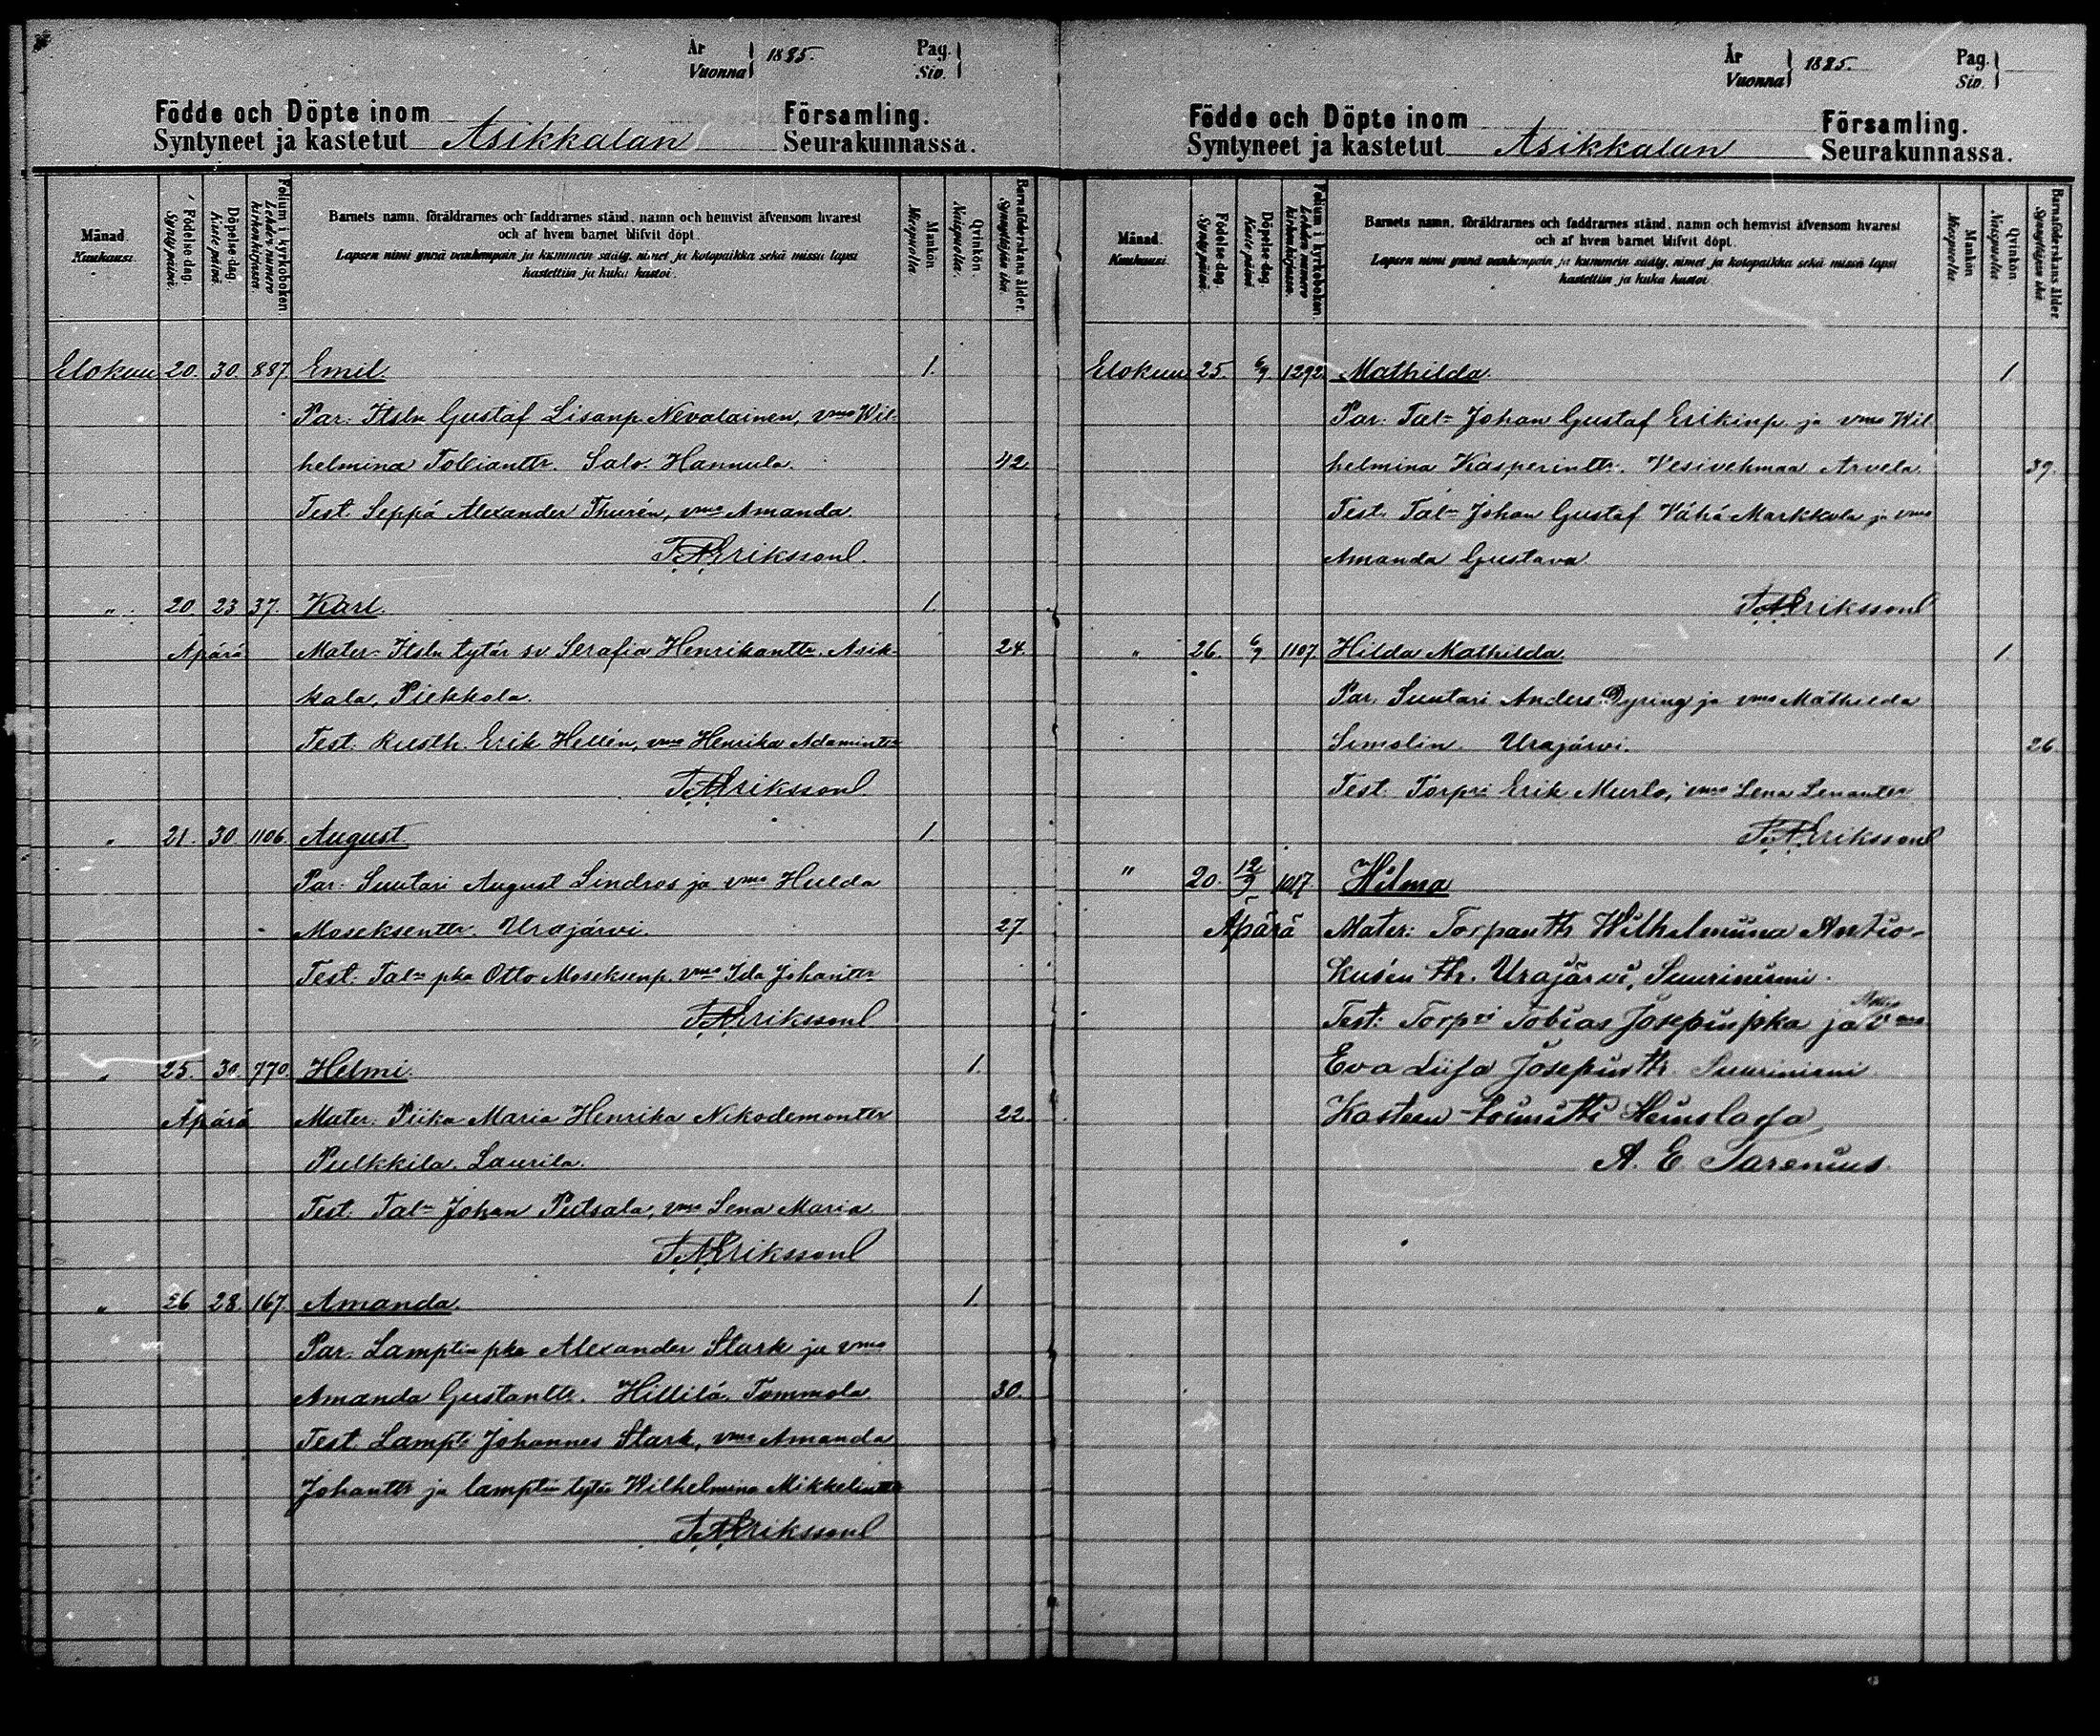 År
Vuonna
1885.
Pag.
Siv.
Födde och Döpte inom
Syntyneet ja kastetut
Asikkalan
Församling.
Seurakunnassa.
Månad.
Kuukausi.
Födelse dag.
Synty päinä.
Döpelse dag.
Kaste päinä
Folium i kyrkoboken
Lehden numero kirkonkirjassa.
Barnets namn, föräldrarnes och faddrarnes stånd, namn och hemvist äfvensom hvarest
och af hvem barnet blifvit döpt.
Lapsen nimi ynnä vanhempain ja kummein sääty, nimet ja kotopaikka sekä missä lapsi
kastettiin ja kuka kastoi.
Mankön
Miespuolia
Qvinkön
Naispuolia.
Barnaföderskans ålder.
Synnyttäjän ikä.
Elokuu 20. 30 887 Emil 1.
Par. Itsln Gustaf Lisanp. Nevalainen, vmo Wil-
helmina Tobiantr. Salo. Hannula. 42.
Test. Seppä Alexander Thurén, vmo Amanda.
T. A. Eriksson
" 20 23 37. Karl. 1.
Äpärä Mater. Itsln tytär sv Serafia Henrikantr. Asik-
kala, Piekkola. 24.
Test. Rusth. Erik Hellén, vmo Henrika Adamintr
T. A. Eriksson
" 21. 30 1106. August 1.
Par. Suutari August Lindros ja vmo Hulda
Moseksentr. Urajärvi. 27
Test. Taln pka Otto Moseksenp. vmo Ida Johantr
T. A. Eriksson
" 25. 30. 770. Helmi 1.
Äpärä Mater. Piika Maria Henrika Nikodemontr 22.
Pulkkila. Laurila.
Test. Taln Johan Putsala, vmo Lena Maria
T. A. Eriksson
" 26 28 167. Amanda. 1.
Par. Lamptin pka Alexander Stark ja vmo
Amanda Gustantr. Hillilä. Tommola 30.
Test. Lampti Johannes Stark, vmo Amanda
Johantr ja lamptin tytär Wilhelmina Mikkelintr
T. A. Eriksson
År
Vuonna
1885.
Pag.
Siv.
Födde och Döpte inom
Syntyneet ja kastetut
Asikkalan
Församling.
Seurakunnassa.
Månad.
Kuukausi.
Födelse dag.
Synty päinä.
Döpelse dag.
Kaste päinä
Folium i kyrkoboken.
Lehden numero kirkonkirjassa.
Barnets namn, föräldrarnes och faddrarnes stånd, namn och hemvist äfvensom hvarest
och af hvem barnet blifvit döpt.
Lapsen nimi ynnä vanhempain ja kummein sääty, nimet ja kotopaikka sekä missä lapsi
kastettiin ja kuka kastoi.
Mankön
Miespuolia
Qvinkön
Naispuolia
Barnaföderskans ålder
Synnyttäjän ikä
Elokuu 25. 6/9 1292 Mathilda. 1.
Par. Taln Johan Gustaf Erikinp. ja vmo Wil-
helmina Kasperintr. Vesivehmaa Arvela 39.
Test. Taln Johan Gustaf Vähä Markkola ja vmo
Amanda Gustava
T. A. Eriksson
" 26. 6/9 1107 Hilda Mathilda 1.
Par. Suutari Anders Dyring ja vmo Mathilda
Simolin. Urajärvi. 26.
Test. Torpri Erik Murto, vmo Lena Lenantr
T. A. Eriksson
" 20. 12/9 1017. Hilma
Äpärä Mater: Torpantr Wilhelmiina Antio-
kusén tr. Urajärvi, Suuriniemi.
Test: Torpri Tobias Josepinpka ja vmo
Eva Liisa Josepintr Suuriniemi
A. E. Sarenius